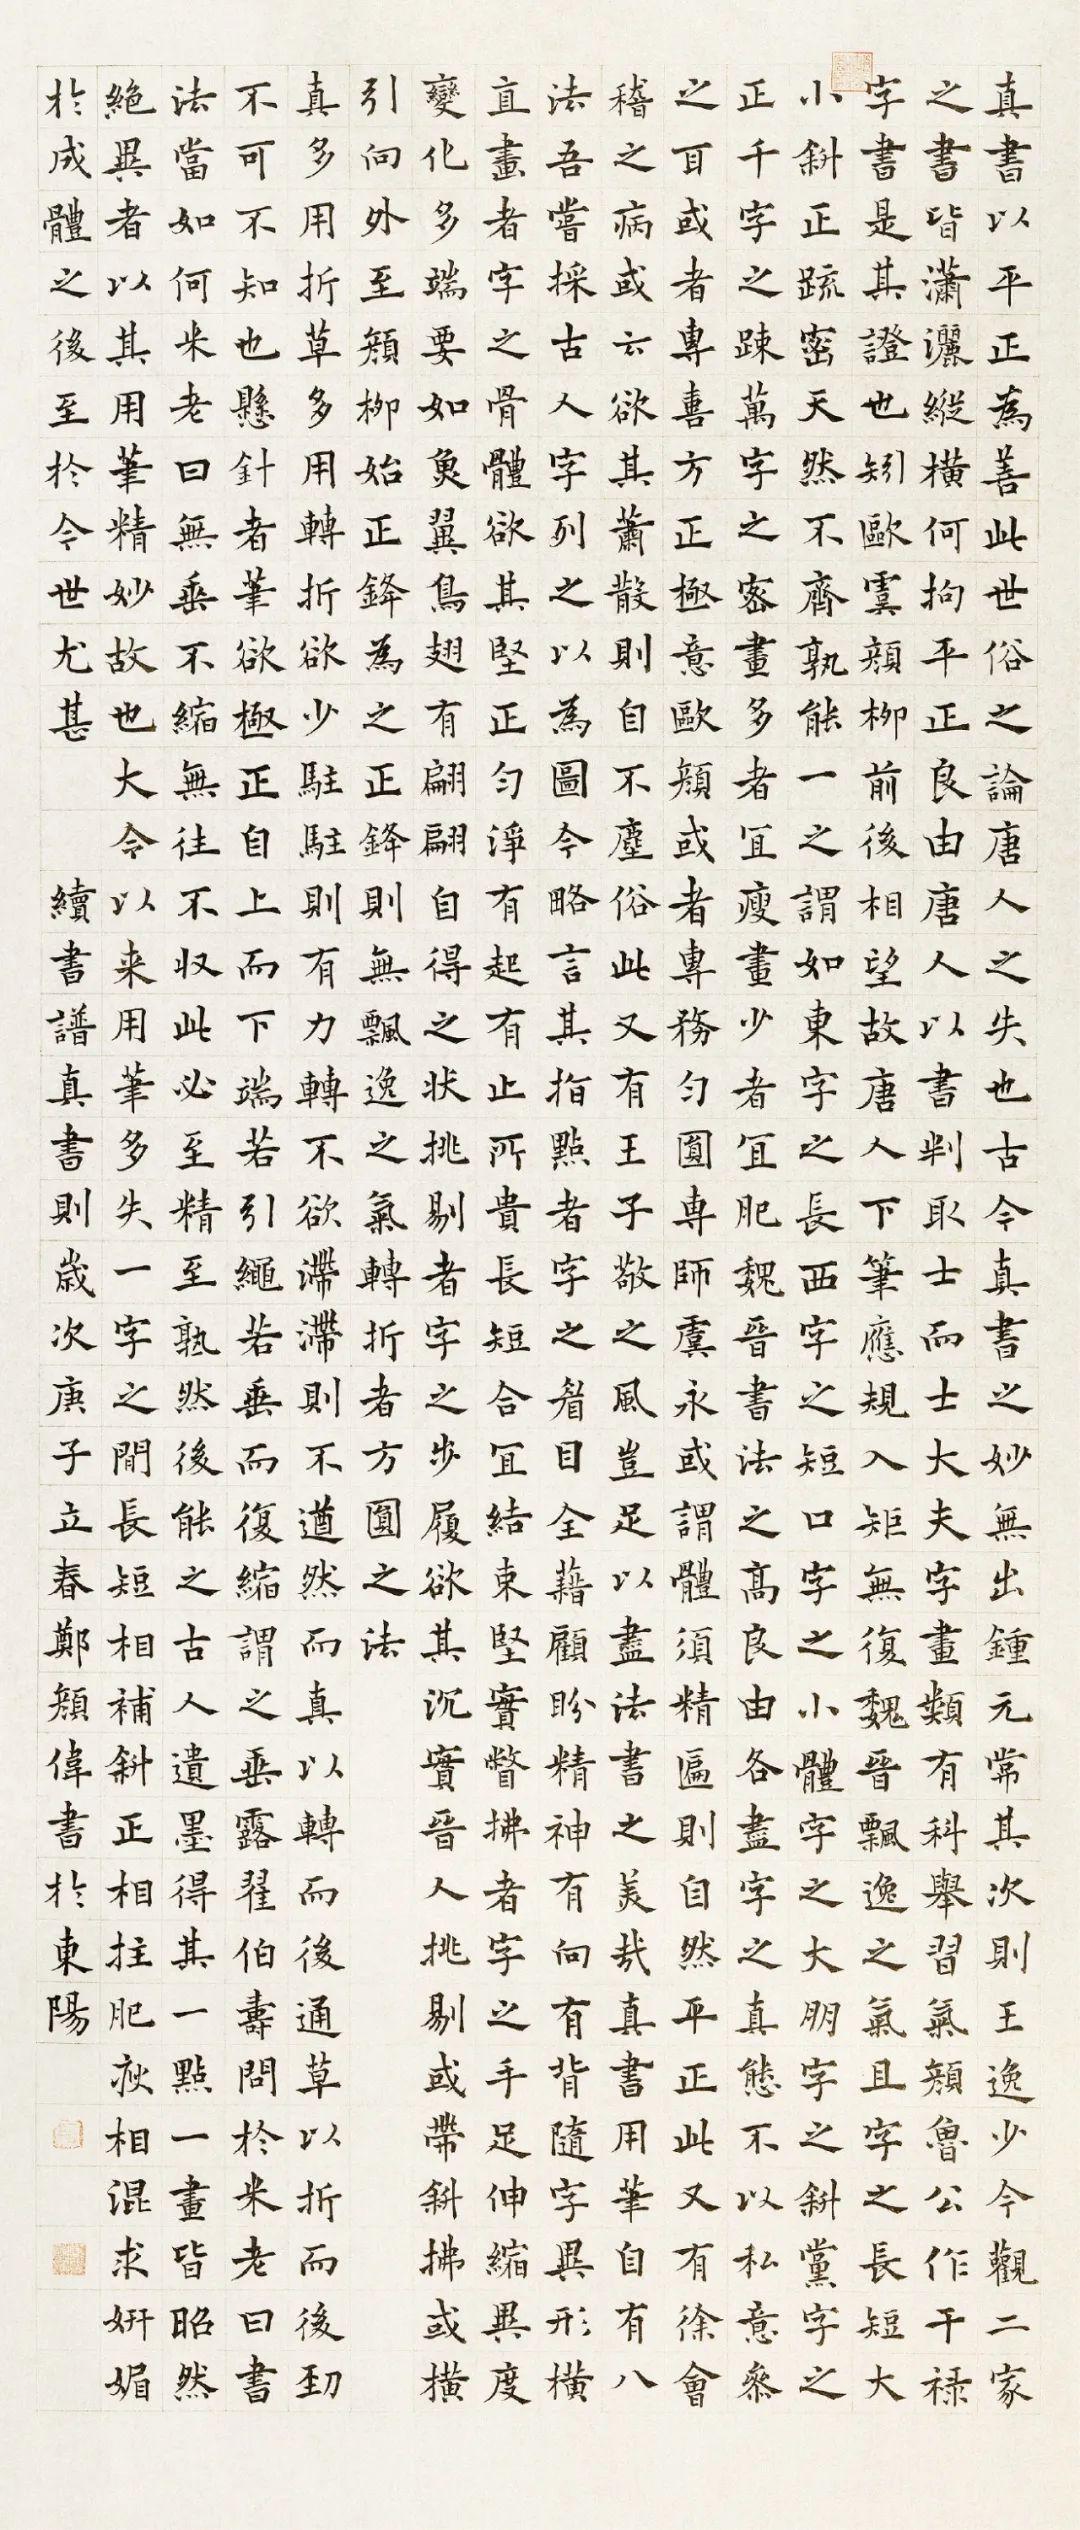 真書以平正為善此世俗之論唐人之失也古今真書之妙無出鍾元常其次則王逸少今觀二家
之書皆瀟灑縱橫何拘平正良由唐人以書判取士而士大夫字畫類有科舉習氣顏魯公作干祿
字書是其證也矧歐虞顏柳前後相望故唐人下筆應規入矩無復魏晉飄逸之氣且字之長短大
小斜正疏密天然不齊孰能一之謂如東字之長西字之短口字之小體字之大朋字之斜黨字之
正千字之疎萬字之密畫多者宜瘦畫少者宜肥魏晉書法之高良由各盡字之真態不以私意參
之耳或者專喜方正極意歐顏或者專務勻圓專師虞永或謂體須精匾則自然平正此又有徐會
稽之病或云欲其蕭散則自不塵俗此又有王子敬之風豈足以盡法書之美哉真書用筆自有八
法吾嘗採古人字列之以為圖今略言其指點者字之眉目全藉顧盼精神有向有背隨字異形橫
直畫者字之骨體欲其堅正勻淨有起有止所貴長短合宜結束堅實瞥拂者字之手足伸縮異度
變化多端要如魚翼鳥翅有翩翩自得之狀挑剔者字之步履欲其沉實晉人挑剔或帶斜拂或橫
引向外至顏柳始正鋒為之正鋒則無飄逸之氣轉折者方圓之法
真多用折草多用轉折欲少駐駐則有力轉不欲滯滯則不遒然而真以轉而後通草以折而後勁
不可不知也懸針者筆欲極正自上而下端若引繩若垂而復縮謂之垂露翟伯壽問於米老曰書
法當如何米老曰無垂不縮無往不收此必至精至熟然後能之古人遺墨得其一點一畫皆昭然
絕異者以其用筆精妙故也大令以来用筆多失一字之間長短相補斜正相拄肥瘦相混求妍媚
於成體之後至於今世尤甚 續書譜真書則歲次庚子立春鄭顏偉書於東陽